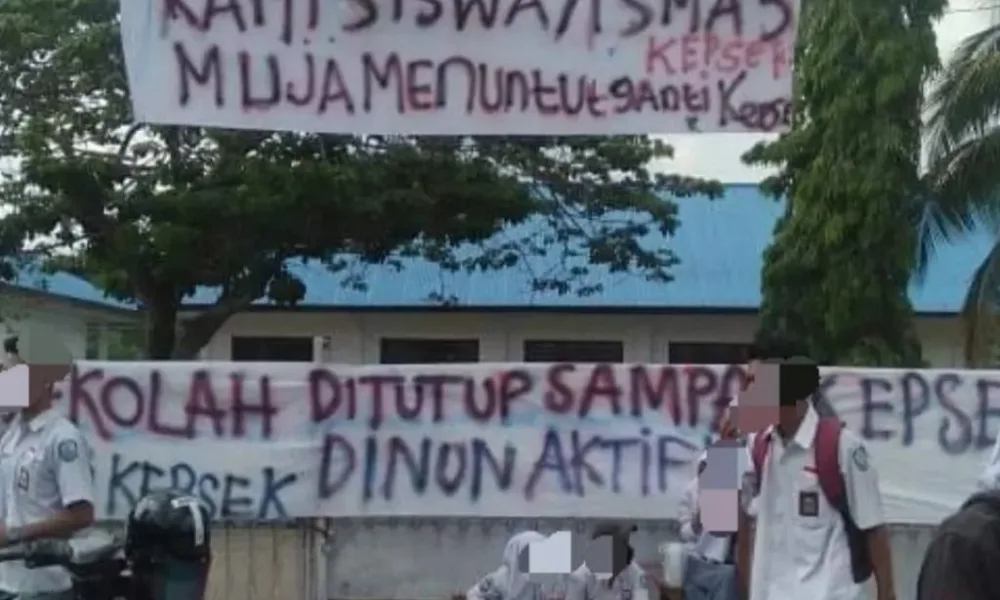 KAMI SISWA/I SMA 5
KEPSEK
MUJA MENUNTUT gANTi Kepse
KOLAH DITUTUP SAMPA KEPSE
KEPSEK DINON AKTiF